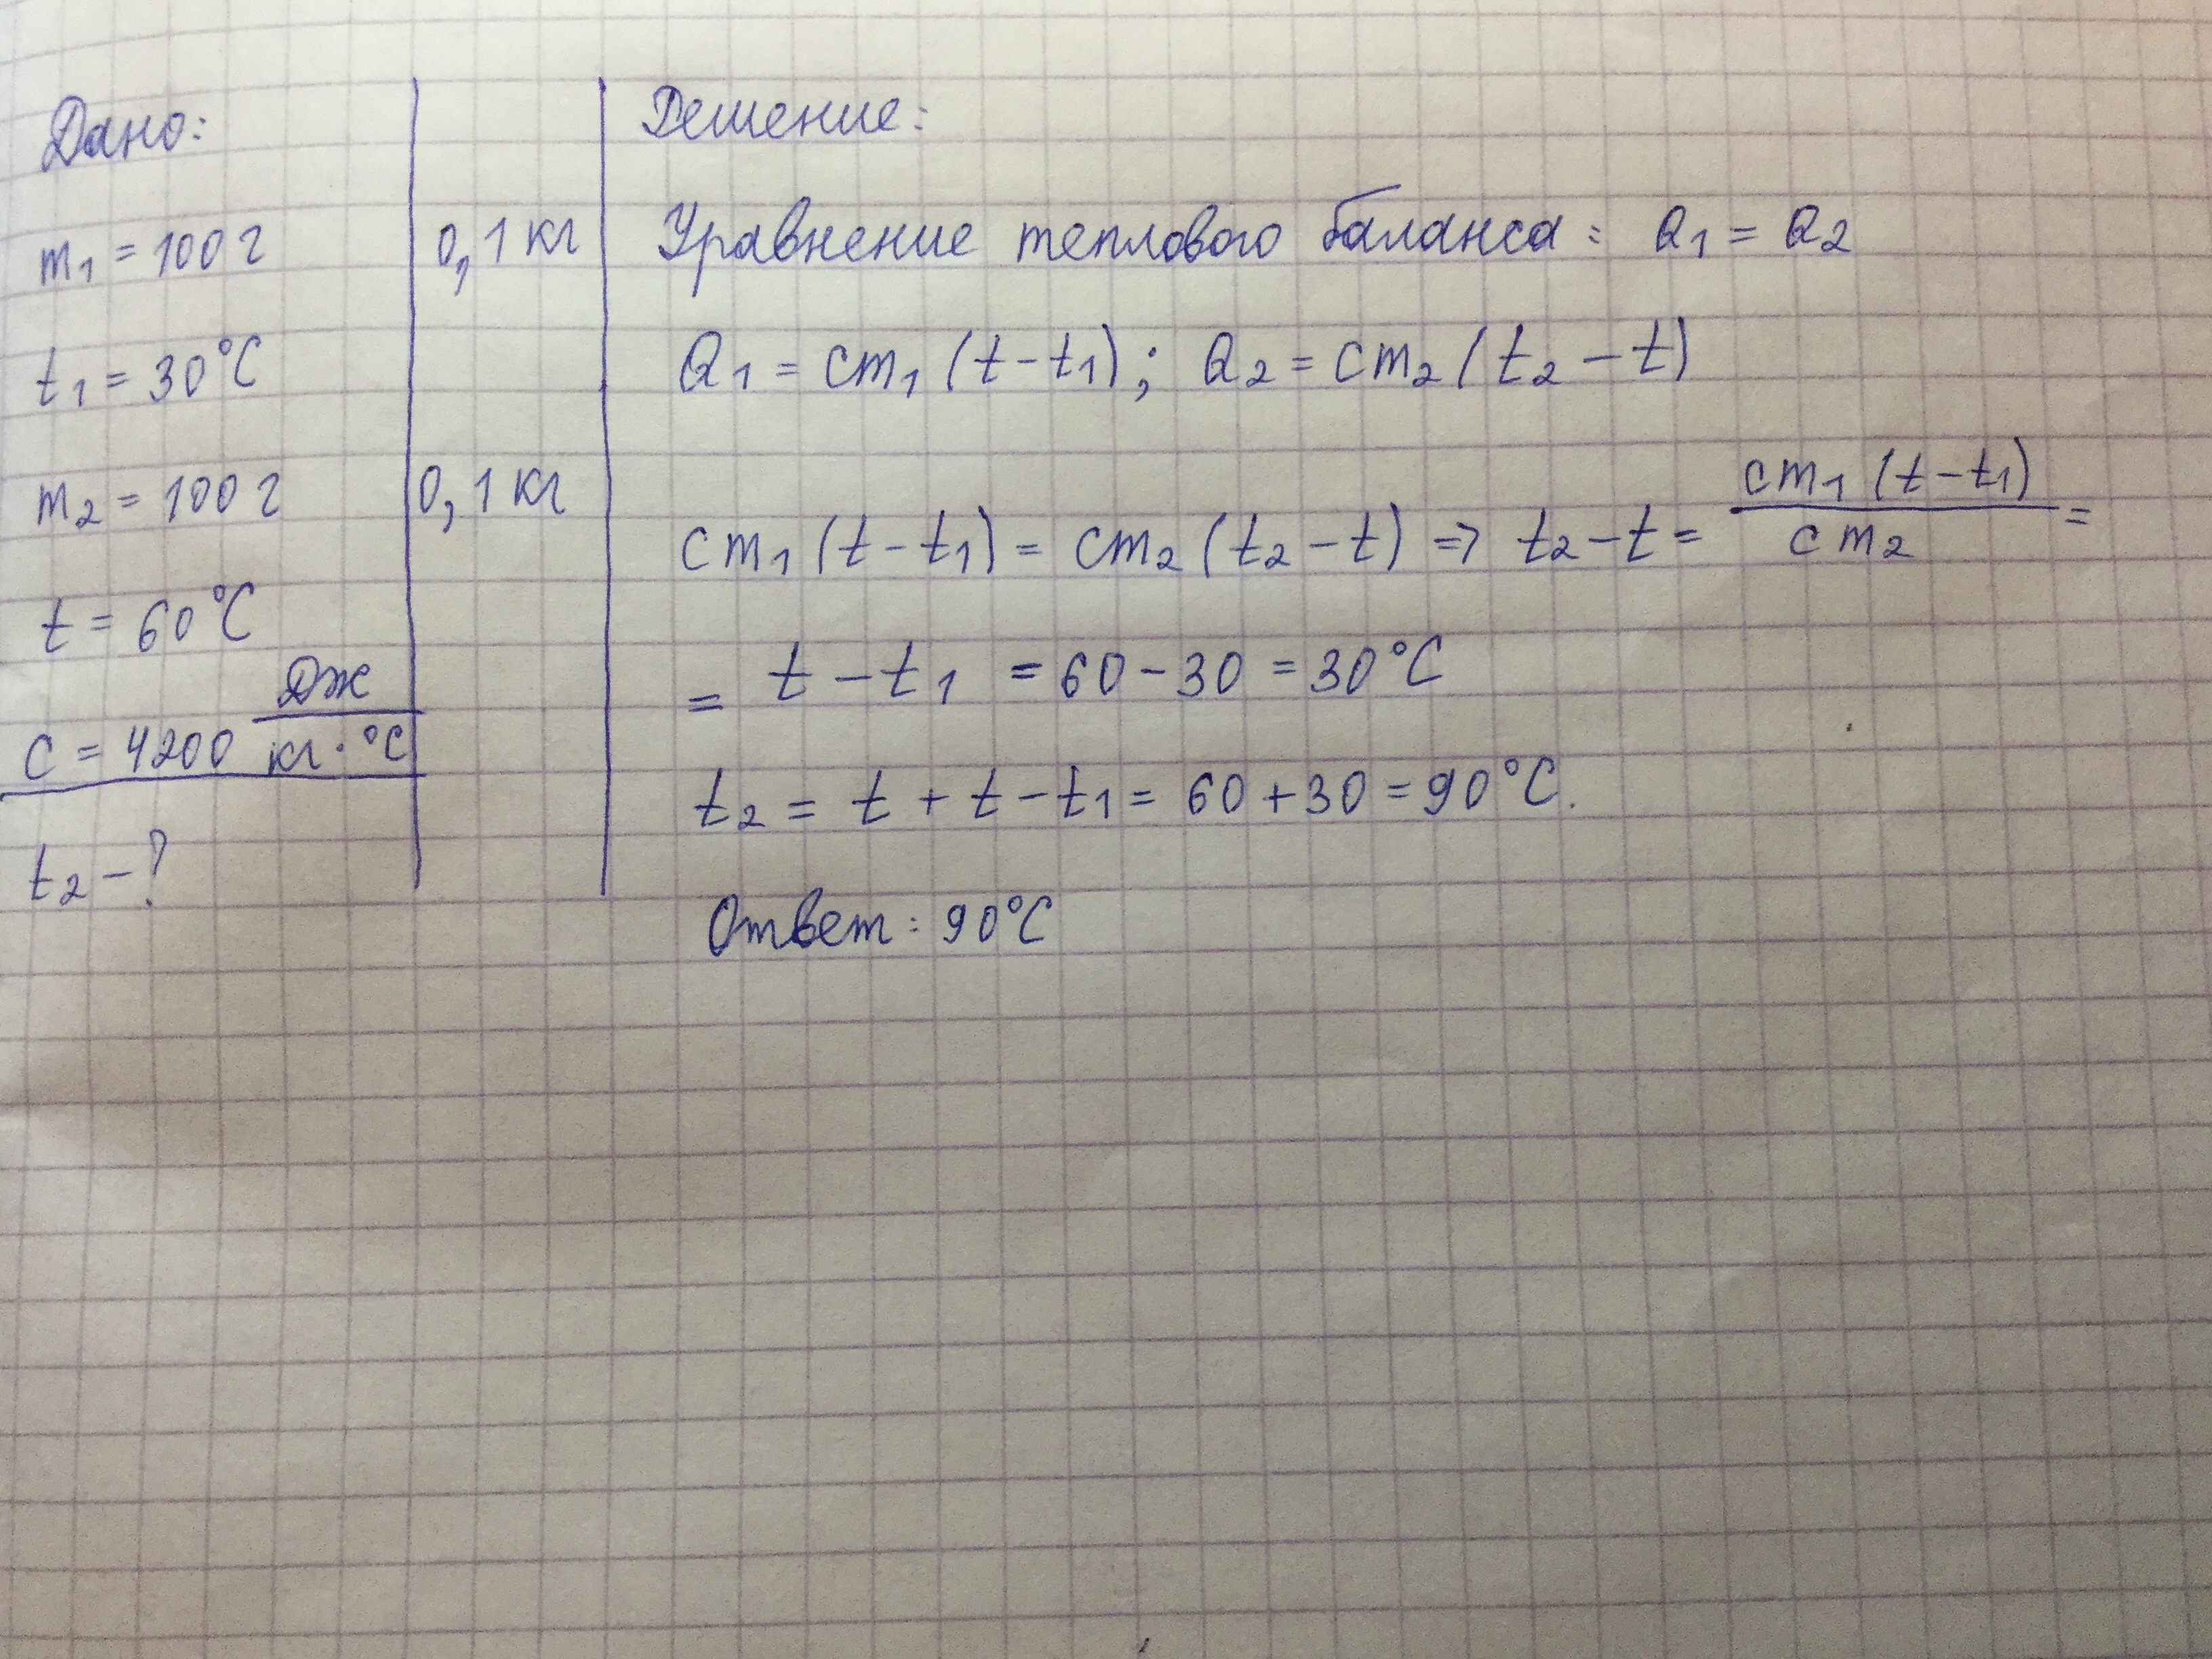 Дано:
m₁ = 100 г
0,1 кг
t₁ = 30°C
m₂ = 100 г
0,1 кг
t = 60°C
c = 4200 Дж/кг·°C
t₂ – ?
Решение:
Уравнение теплового баланса: Q₁ = Q₂
Q₁ = cm₁ (t – t₁); Q₂ = cm₂ (t₂ – t)
cm₁ (t – t₁) = cm₂ (t₂ – t) => t₂ – t = cm₁ (t – t₁)/cm₂ =
= t – t₁ = 60 – 30 = 30°C
t₂ = t + t – t₁ = 60 + 30 = 90°C.
Ответ: 90°C